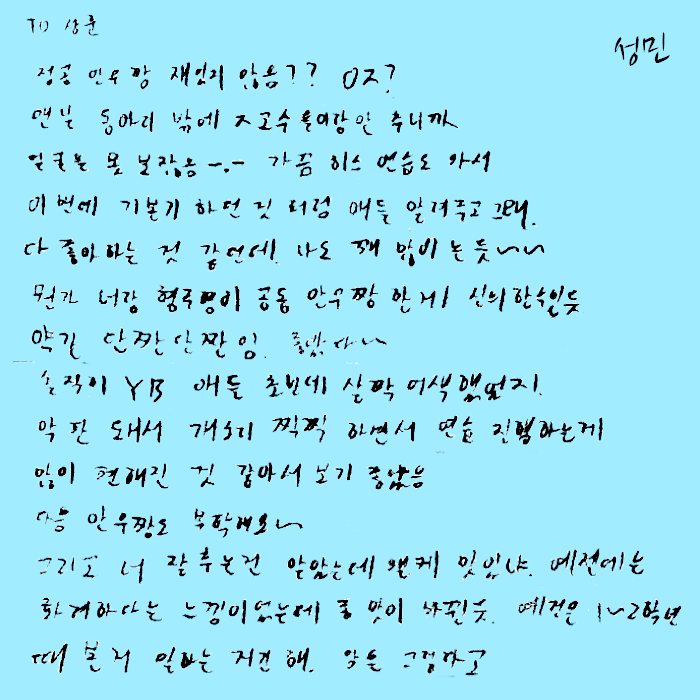 TO 상훈
성민
정공 안무짱 재밌지 않음?? ㅇㅈ?
맨날 동아리 밖에 지고수들이랑만 추니까
얼굴을 못 보잖음 -.- 가끔 히스 연습도 와서
이번에 기본기 하던 것 처럼 애들 알려주고 그래.
다 좋아하는 것 같던데. 나도 꽤 많이 는듯~~
뭔가 너랑 형주명이 공동 안무짱 한게 신의한수인듯
약간 단짠단짠임. 좋았다~
솔직히 YB 애들 초반에 살짝 어색했었지.
막 판 도에서 개소리 찍찍 하면서 연습 진행하는게
많이 편해진 것 같아서 보기 좋았음
다음 안무짱도 부탁해요~
그리고 너 잘추는건 알았는데 왤케 멋있냐. 예전에는
화려하다는 느낌이었는데 좀 맛이 바뀐듯. 예전은 1~2학년
때 본지 일하는 지건 해. 암튼 그렇다고